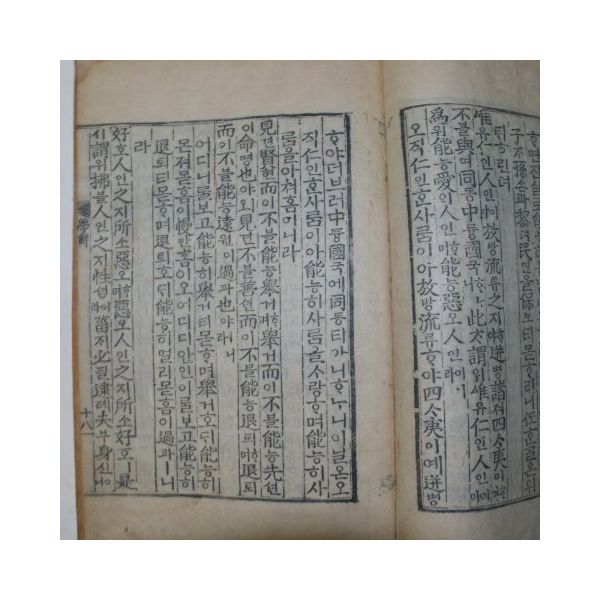 子ᄌᆞ孫손과黎려民민을保보티몯ᄒᆞ리니
ᄐᆡᄒᆞ린뎌
唯유仁인人인이放방流류之지ᄒᆞ야迸병諸져四ᄉᆞ夷이ᄒᆞ야
不블與여同동中듕國국ᄒᆞᄂᆞ니此ᄎᆞ謂위唯유仁인人인이아
爲위能능愛ᄋᆡ人인ᄒᆞ며能능惡오人인이니라
오직仁인ᄒᆞᆫ사ᄅᆞᆷ이아放방流류ᄒᆞ야四ᄉᆞ夷이예迸병
ᄒᆞ야더브러中듕國국에同동티아니ᄒᆞᄂᆞ니이닐온오
직仁인ᄒᆞᆫ사ᄅᆞᆷ이아能능히사ᄅᆞᆷ을ᄉᆞ랑ᄒᆞ며能능히사
ᄅᆞᆷ을아쳐홈이니라
見견賢현而이不블能능擧거ᄒᆞ며擧거而이不블能능先션
이命명也야ㅣ오見견不블善션而이不블能능退퇴ᄒᆞ며退퇴
而이不블能능遠원이過과也야ㅣ니라
어디니ᄅᆞᆯ보고能능히擧거티몯ᄒᆞ며擧거호ᄃᆡ能능히
몬져몯홈이慢만홈이오어디디안인이ᄅᆞᆯ보고能능히
退퇴티몯ᄒᆞ며退퇴호ᄃᆡ能능히멀리몯홈이過과ㅣ니
라
好호人인之지所소惡오ᄒᆞ며惡오人인之지所소好호ㅣ是
시謂위拂블人인之지性셩이라菑ᄌᆡ必필逮톄夫부身신이니
學解
十八